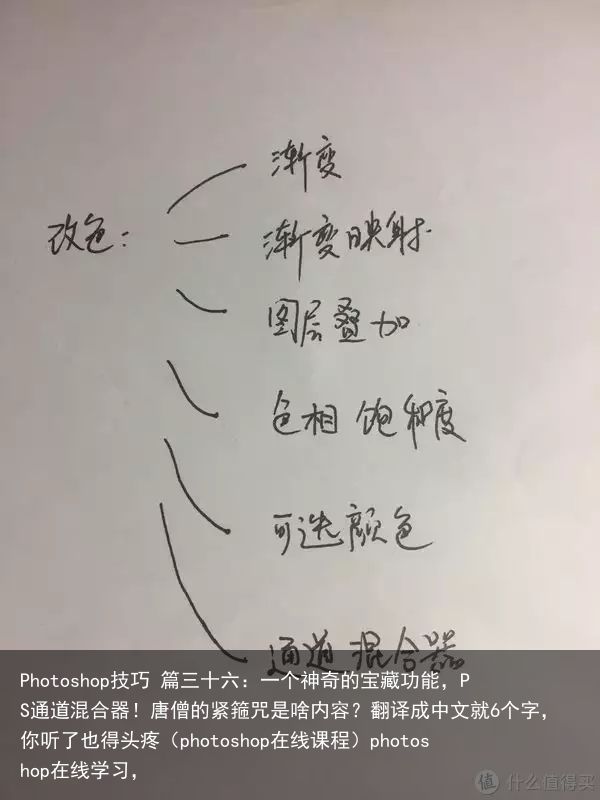 渐变
改色：
渐变映射
图层叠加
色相 饱和度
可选颜色
通道混合器
Photoshop技巧 篇三十六：一个神奇的宝藏功能，P
S通道混合器！唐僧的紧箍咒是啥内容？翻译成中文就6个字，
你听了也得头疼（photoshop在线课程）photos
hop在线学习，
值 什么值得买